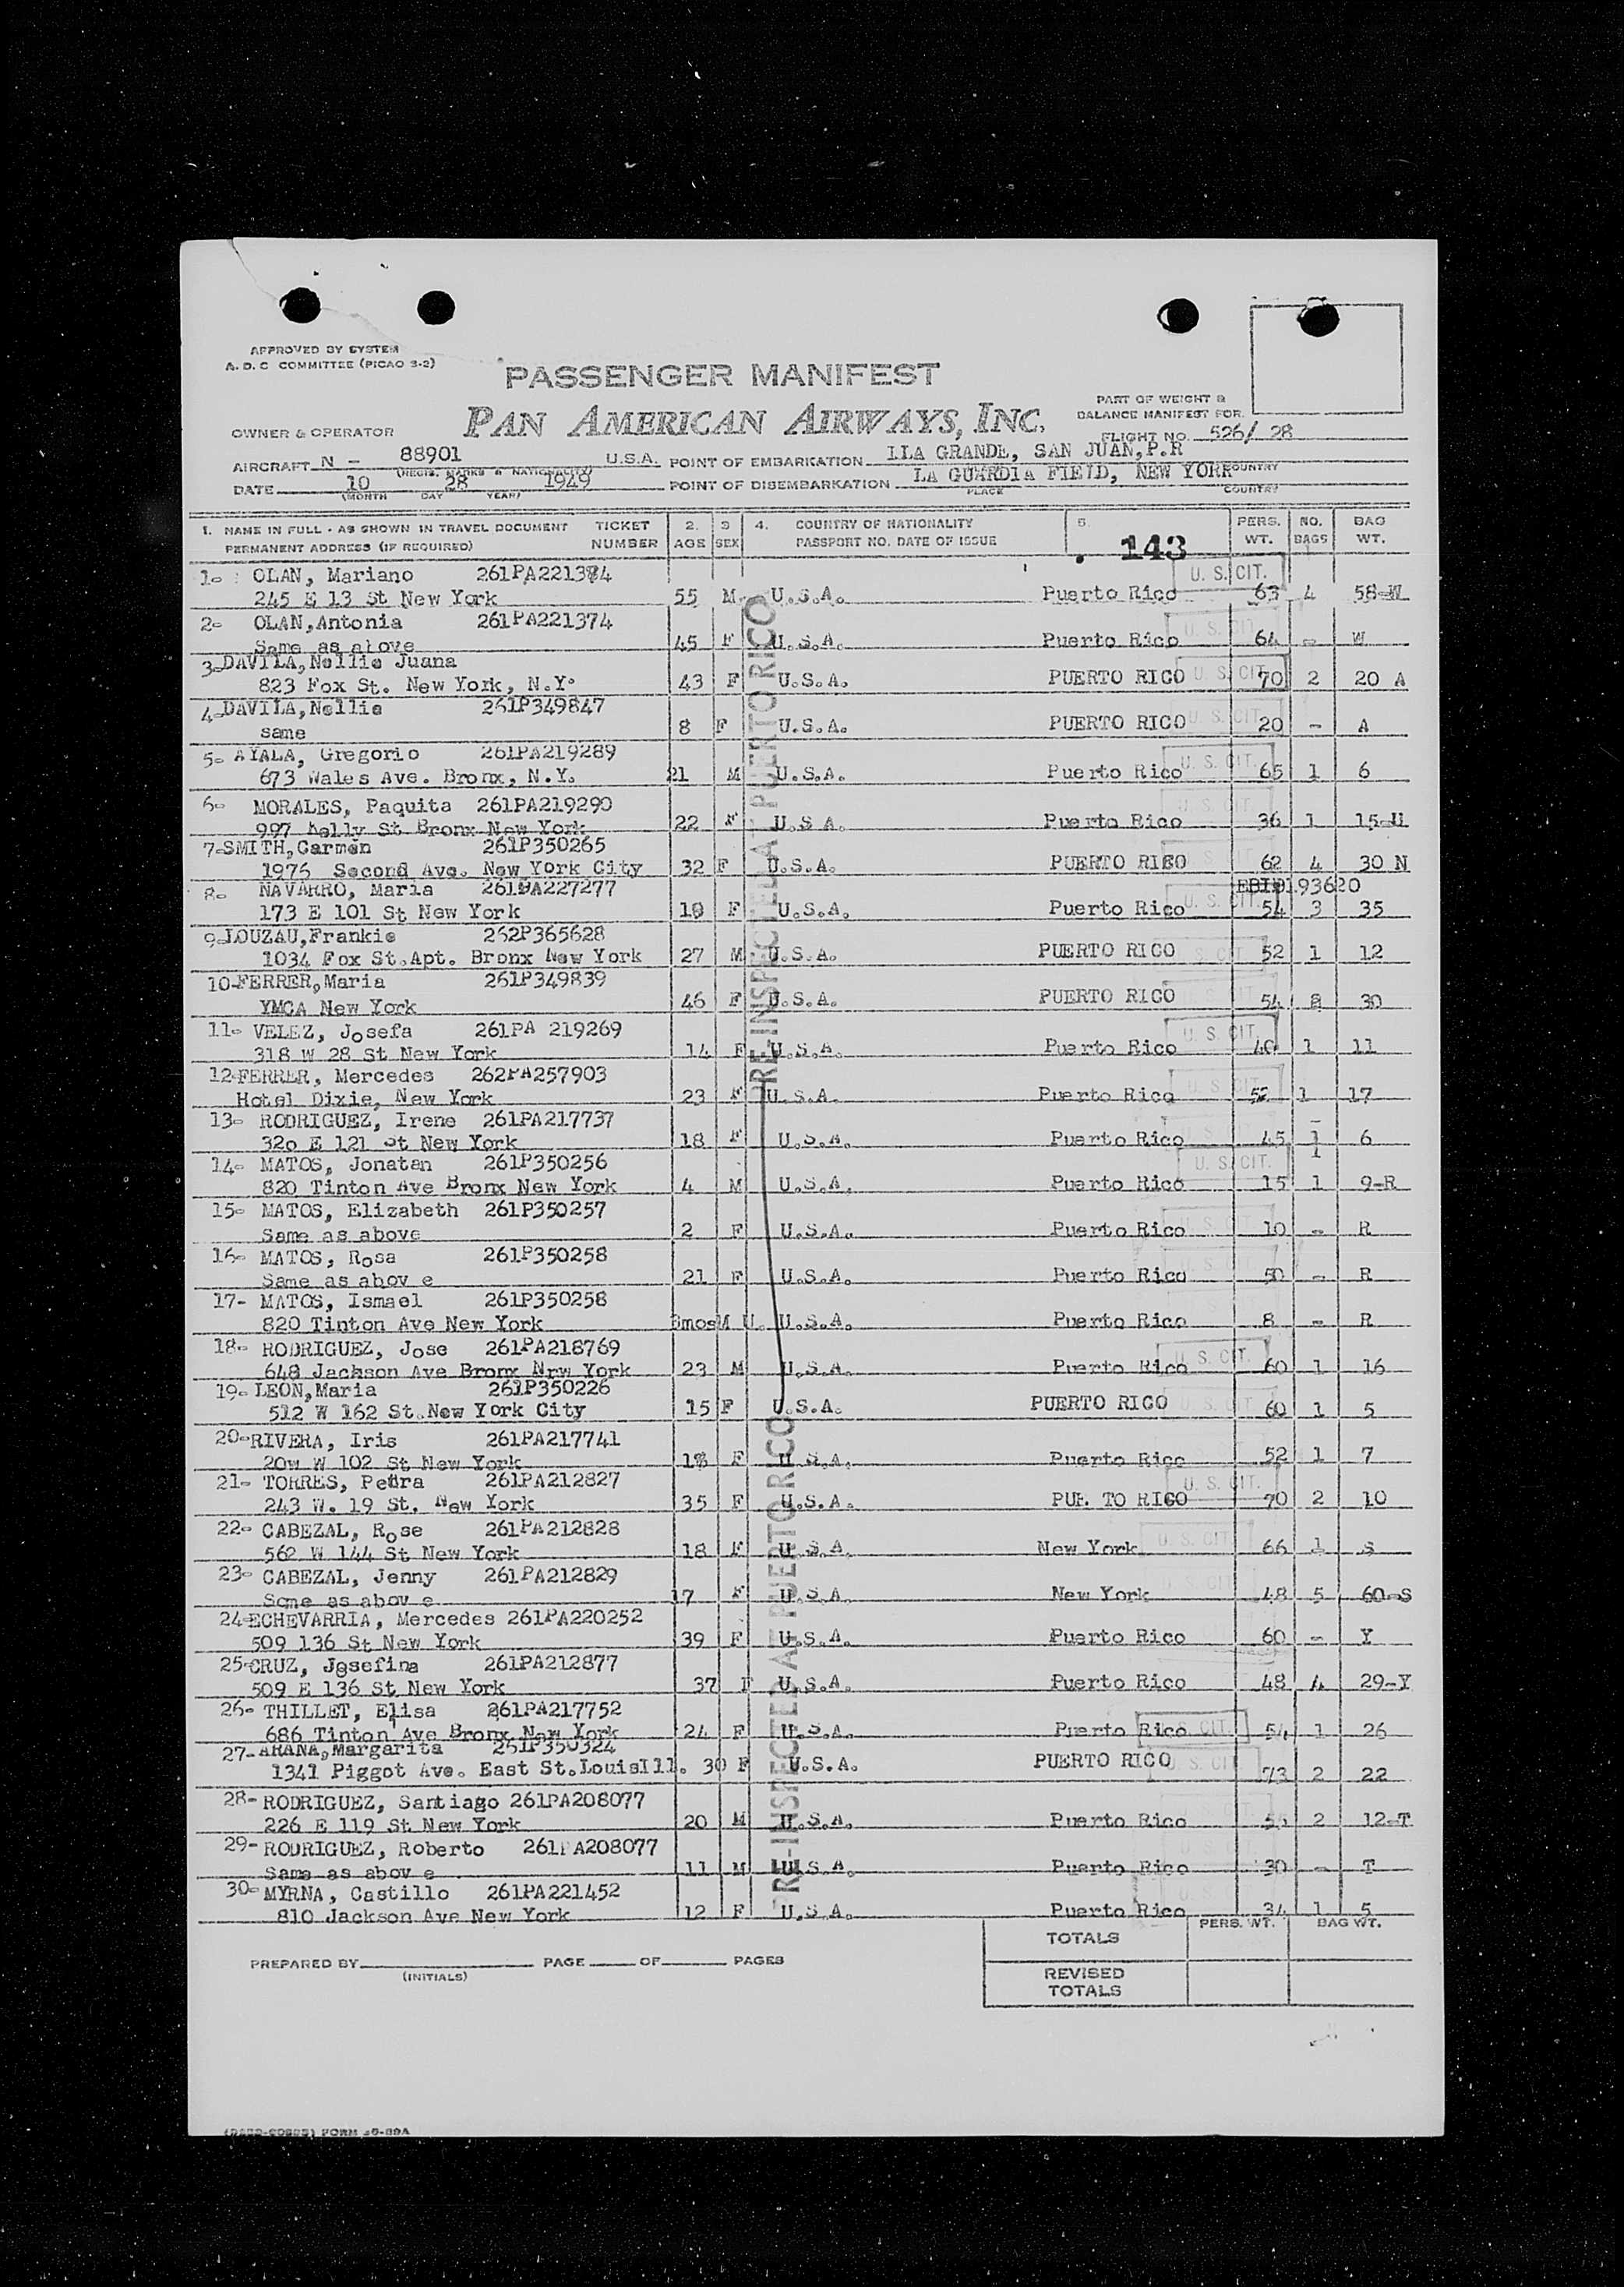 APPROVED BY SYSTEM
A. O. C COMMITTEE (PICAO 3-2)
PASSENGER MANIFEST
PART OF WEIGHT &
BALANCE MANIFEST FOR
PAN AMERICAN AIRWAYS, INC.
OWNER & OPERATOR
FLIGHT NO. 526/ 28
AIRCRAFT N - 88901 U.S.A. POINT OF EMBARKATION ILA GRANDE, SAN JUAN,P.R
(REGIS. MARKS & NATIONALITY) COUNTRY
DATE 10 28 1949 POINT OF DISEMBARKATION LA GUARDIA FIELD, NEW YORK
(MONTH DAY YEAR) PLACE COUNTRY
1. NAME IN FULL - AS SHOWN IN TRAVEL DOCUMENT TICKET 2. 3 4. COUNTRY OF NATIONALITY 5. PERS. NO. BAG
PERMANENT ADDRESS (IF REQUIRED) NUMBER AGE SEX PASSPORT NO. DATE OF ISSUE 143 WT. BAGS WT.
1- OLAN, Mariano 261PA221374 U. S. CIT.
245 E 13 St New York 55 M U.S.A. Puerto Rico 63 4 58-W
2- OLAN,Antonia 261PA221374 U. S. CIT
Same as above 45 F U.S.A. Puerto Rico 64 - W
3-DAVILA,Nellie Juana
823 Fox St. New York, N.Y. 43 F U.S.A. PUERTO RICO U. S. CIT. 70 2 20 A
4-DAVILA,Nellie 261P349847
same 8 F U.S.A. PUERTO RICO U. S. CIT. 20 - A
5- AYALA, Gregorio 261PA219289
673 Wales Ave. Bronx, N.Y. 21 M U.S.A. Puerto Rico U. S. CIT. 65 1 6
6- MORALES, Paquita 261PA219290 U. S. CIT.
997 Kelly St Bronx New York 22 F U.S A. Puerto Rico 36 1 15-U
7-SMITH,Carmen 261P350265
1976 Second Ave. New York City 32 F U.S.A. PUERTO RICO 62 4 30 N
8- NAVARRO, Maria 261PA227277 EBID193620
173 E 101 St New York 18 F U.S.A. Puerto Rico U. S. CIT. 54 3 35
9-LOUZAU,Frankie 262P365628
1034 Fox St.Apt. Bronx New York 27 M U.S.A. PUERTO RICO S. CIT 52 1 12
10-FERRER,Maria 261P349839
YMCA New York 46 F U.S.A. PUERTO RICO 54 8 30
11- VELEZ, Josefa 261PA 219269 U. S. CIT.
318 W 28 St New York 14 F U.S.A. Puerto Rico 40 1 11
12-FERRER, Mercedes 262PA257903 U. S. CIT
Hotel Dixie, New York 23 F U.S.A. Puerto Rico 52 1 17
13- RODRIGUEZ, Irene 261PA217737
320 E 121 St New York 18 F U.S.A. Puerto Rico 45 1 6
14- MATOS, Jonatan 261P350256 U. S. CIT. 1
820 Tinton Ave Bronx New York 4 M U.S.A. Puerto Rico 15 1 9-R
15- MATOS, Elizabeth 261P350257
Same as above 2 F U.S.A. Puerto Rico 10 - R
16- MATOS, Rosa 261P350258
Same as abov e 21 F U.S.A. Puerto Rico 50 - R
17- MATOS, Ismael 261P350258
820 Tinton Ave New York 8mos M U. U.S.A. Puerto Rico 8 - R
18- RODRIGUEZ, Jose 261PA218769
648 Jackson Ave Bronx Nrw York 23 M U.S.A. Puerto Rico U. S. CIT. 60 1 16
19- LEON,Maria 261P350226
512 W 162 St.New York City 15 F U.S.A. PUERTO RICO U. S. CIT 60 1 5
20-RIVERA, Iris 261PA217741
20w W 102 St New York 18 F U.S.A. Puerto Rico 52 1 7
21- TORRES, Petra 261PA212827 U. S. CIT.
243 W. 19 St. New York 35 F U.S.A. PUE TO RICO 70 2 10
22- CABEZAL, Rose 261PA212828
562 W 144 St New York 18 F U.S.A. New York U. S. CIT. 66 1 S
23- CABEZAL, Jenny 261PA212829
Same as abov e 17 F U.S.A. New York 48 5 60-S
24-ECHEVARRIA, Mercedes 261PA220252
509 136 St New York 39 F U.S.A. Puerto Rico 60 - Y
25-CRUZ, Josefina 261PA212877
509 E 136 St New York 37 F U.S.A. Puerto Rico 48 4 29-Y
26- THILLET, Elisa 261PA217752
686 Tinton Ave Bronx New York 24 F U.S.A. Puerto Rico CIT. 54 1 26
27-ARANA,Margarita 261P350324
1341 Piggot Ave. East St.LouisIll. 30 F U.S.A. PUERTO RICO U. S. CIT 73 2 22
28- RODRIGUEZ, Santiago 261PA208077
226 E 119 St New York 20 M U.S.A. Puerto Rico 55 2 12-T
29- RODRIGUEZ, Roberto 261PA208077
Same as abov e 11 M U.S.A. Puerto Rico 30 - T
30- MYRNA, Castillo 261PA221452
810 Jackson Ave New York 12 F U.S.A. Puerto Rico 34 1 5
PRE-INSPECTED AT PUERTO RICO
PRE-INSPECTED AT PUERTO RICO
PERS. WT. BAG WT.
TOTALS
PREPARED BY PAGE OF PAGES
(INITIALS)
REVISED
TOTALS